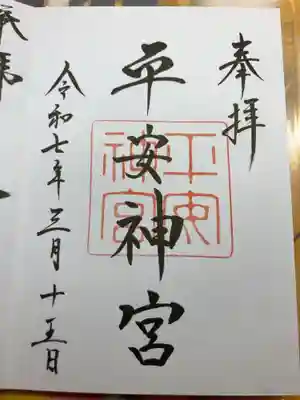 奉拝
平安神宮
平安神宮
令和七年三月十五日